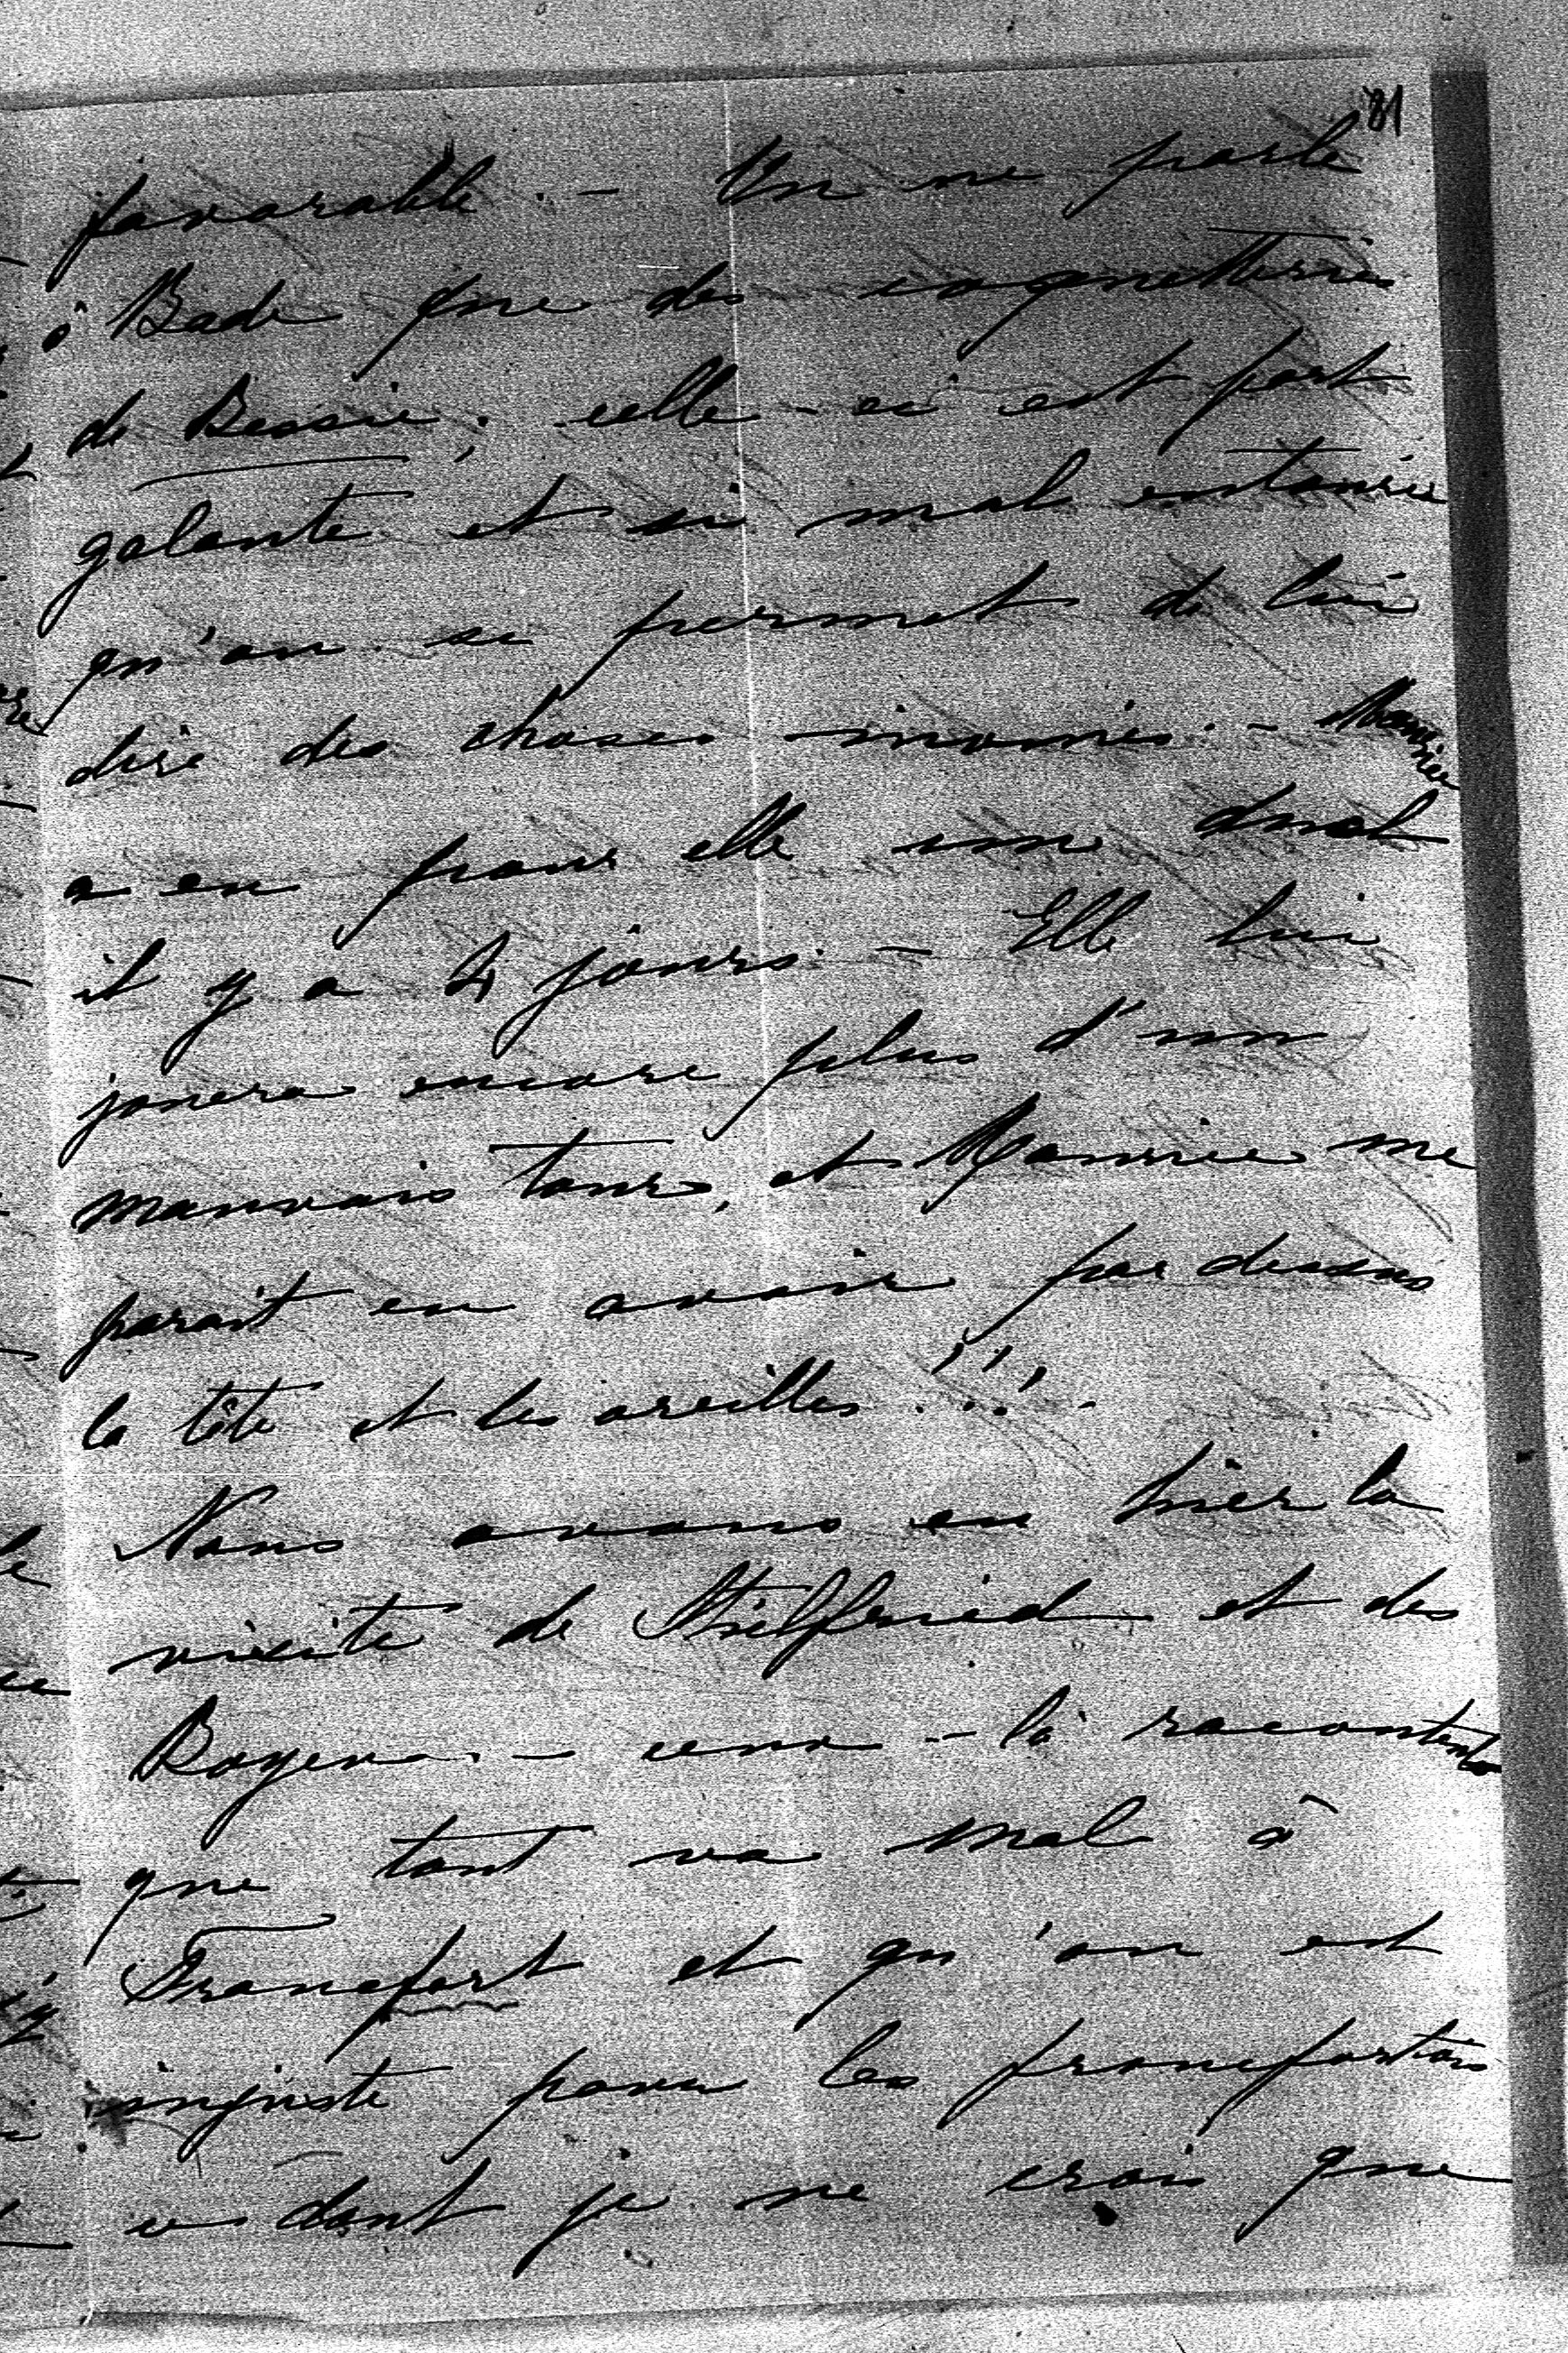 81
favorable. – On ne parle
à Bade que des coquetteries
de Bessie; celle-ci est fort
galante et si mal entourée
qu'on se permet de lui
dire des choses inouies. – Maurice
a eu pour elle un duel
il y a 4 jours. – Elle lui
jouera encore plus d'un
mauvais tour, et Maurice me
parait en avoir par dessus
la tête et les oreilles!!!
Nous avons eu hier la
visite de Stielfried et des
Boyen. – ceux-là racontent
que tout va mal à
Francfort et qu'on est
injuste pour les francfortois
ce dont je ne crois que